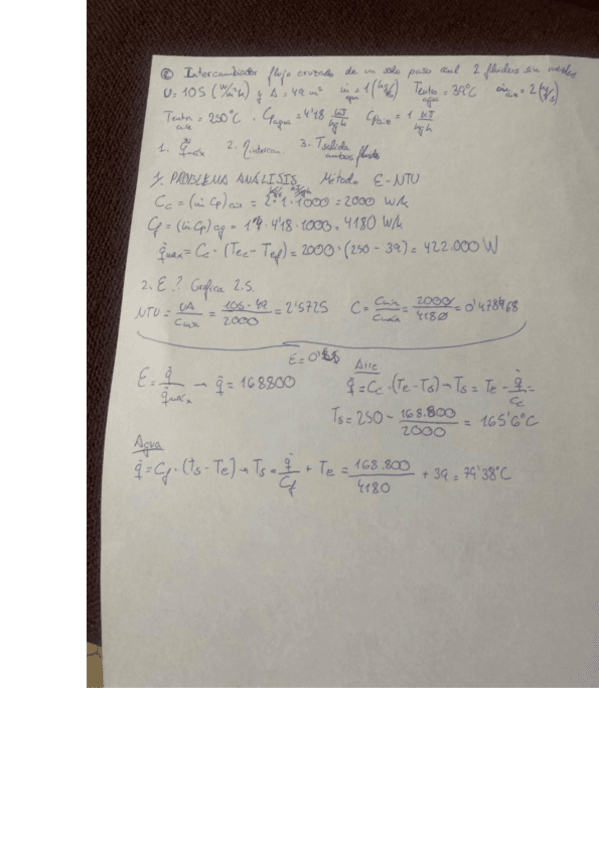 ② Intercambiador flujo cruzado de un solo paso con 2 fluidos sin mezclar
U = 105 (W/m²k) y A = 49 m² ṁ agua = 1 (kg/s) Tentra agua = 39°C ṁ aire = 2 (kg/s)
Tentra aire = 250°C . Cp agua = 4'18 kJ/kg k Cp aire = 1 kJ/kg k
1. q̇ máx 2. η intercam. 3. Tsalida ambos fluidos
1. PROBLEMA ANÁLISIS. Método E-NTU
Cc = (ṁ Cp) aire = 2 · 1 · 1000 = 2000 W/k
Cf = (ṁ Cp) ag = 1 · 4'18 · 1000 = 4180 W/k
q̇ máx = Cc · (Tec - Tef) = 2000 · (250 - 39) = 422.000 W
2. E? Grafica 2.5.
NTU = UA / Cmin = 105 · 49 / 2000 = 2'5725 C = Cmin / Cmáx = 2000 / 4180 = 0'478468
E = q̇ / q̇ máx → q̇ = 168800
Aire
q̇ = Cc · (Te - Ts) → Ts = Te - q̇ / Cc =
Ts = 250 - 168.800 / 2000 = 165'6°C
Agua
q̇ = Cf · (Ts - Te) → Ts = q̇ / Cf + Te = 168.800 / 4180 + 39 = 79'38°C